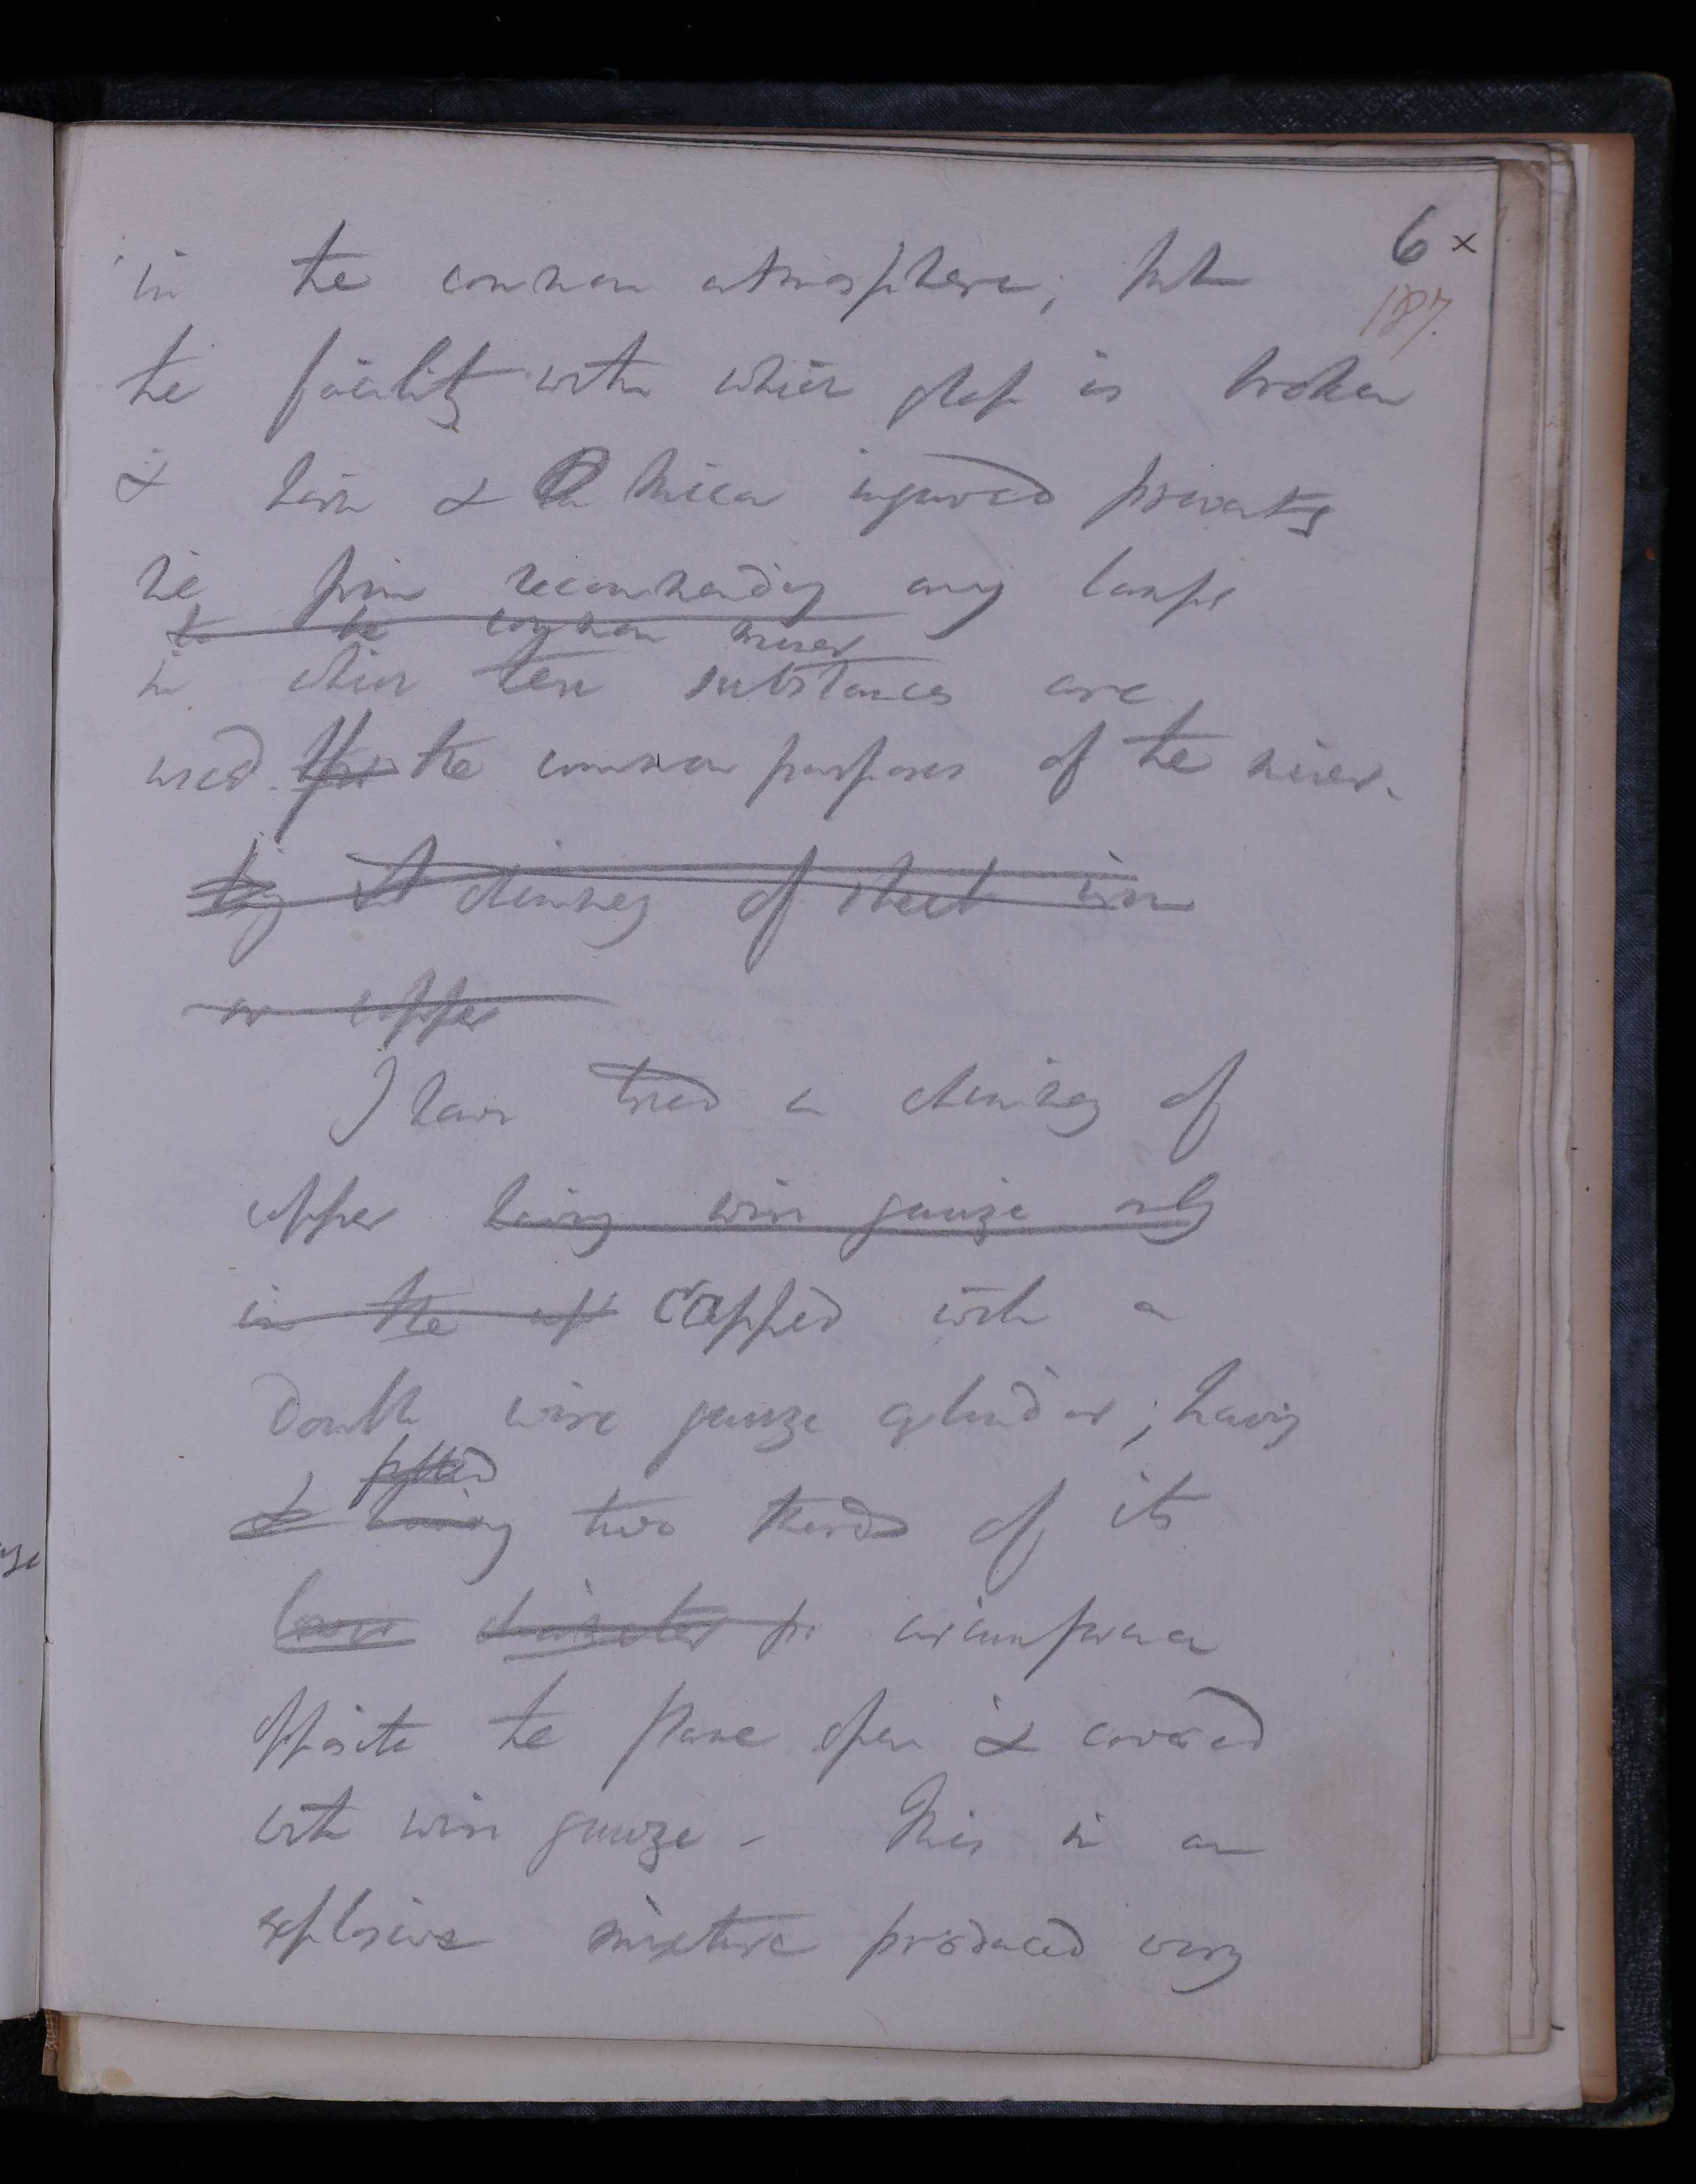 6 x
187.
in the common atmosphere; but
the facility with which glass is broken
& horn & mica injured prevents
me from recommending any lamps
to the common miner
in which these substances are
used for the common purposes of the miner.
by A chimney of sheet iron
or copper
I have tried a chimney of
copper having wire gauze only
in the up capped with a
double wire gauze cylinder; having
fitted
& having two thirds of its
lower diameter for circumference
opposite the flame open & covered
with wire gauze - This in an
explosive mixture produced very